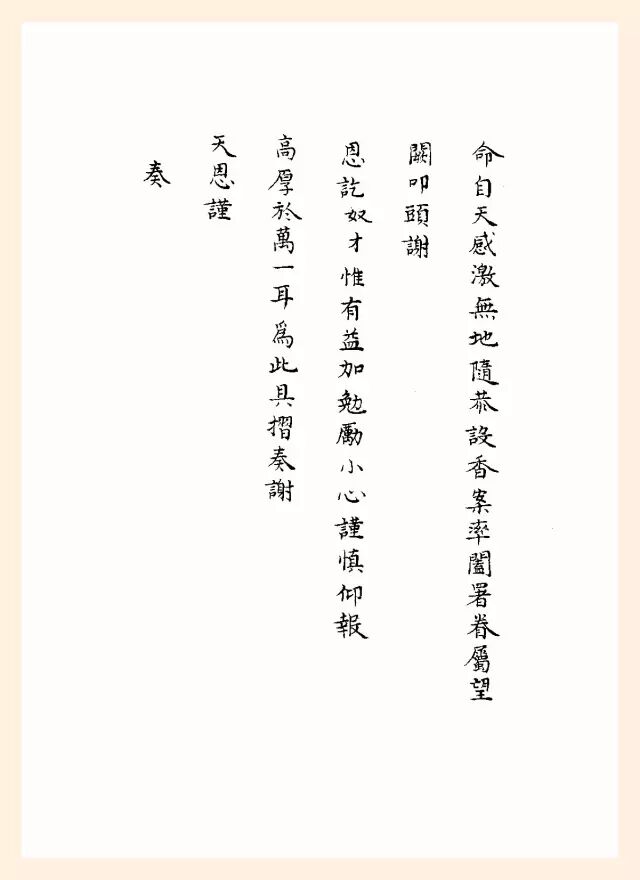 命自天感激無地隨恭設香案率闔署眷屬望
闕叩頭謝
恩訖奴才惟有益加勉勵小心謹慎仰報
高厚於萬一耳為此具摺奏謝
天恩謹
奏